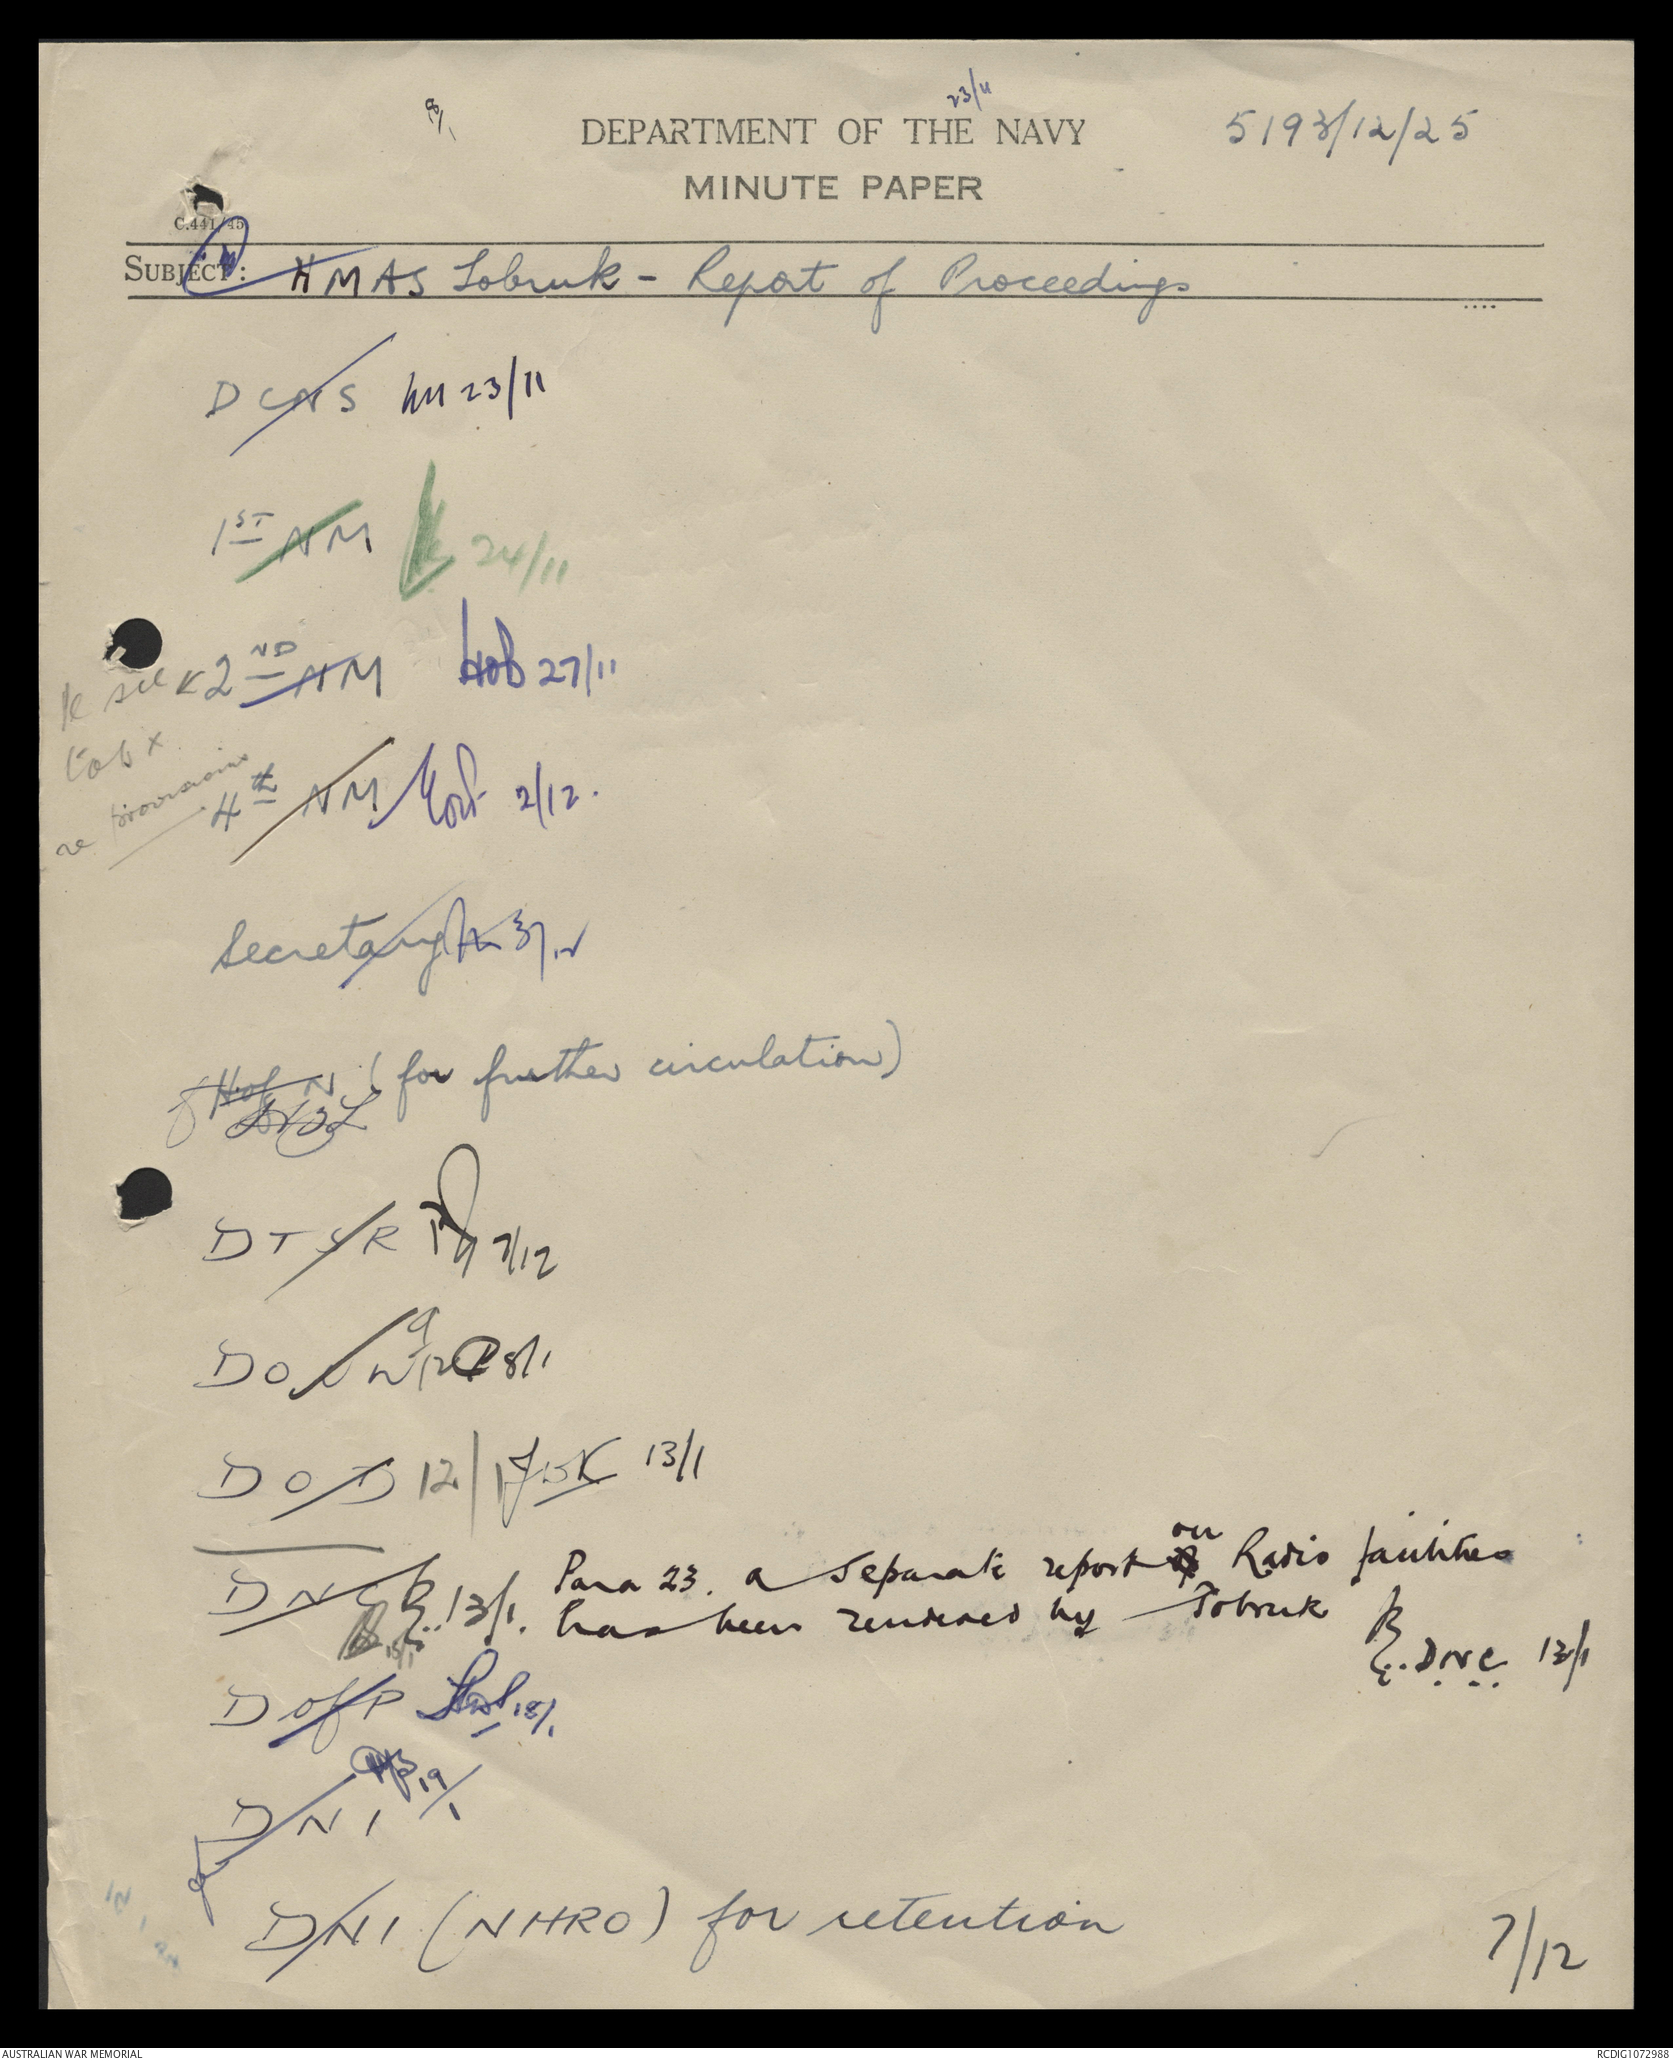 23/11
DEPARTMENT OF THE NAVY
5193/12/25
MINUTE PAPER
C.441/45
SUBJECT: HMAS Tobruk - Report of Proceedings
DCNS 23/11
1ST NM 24/11
2ND NM 27/11
to see
tab x
re provisions
4th NM 2/12.
Secretary 3/12
H of N (for further circulation)
DTSR 7/12
DONW 8/1
DOD 12/1 13/1
DNC 13/1. Para 23. a separate report on Radio facilities
has been rendered by Tobruk
DNC 13/1
D of P 18/1
19/1
DNI
DNI (NHRO) for retention
7/12
AUSTRALIAN WAR MEMORIAL
RCDIG1072988